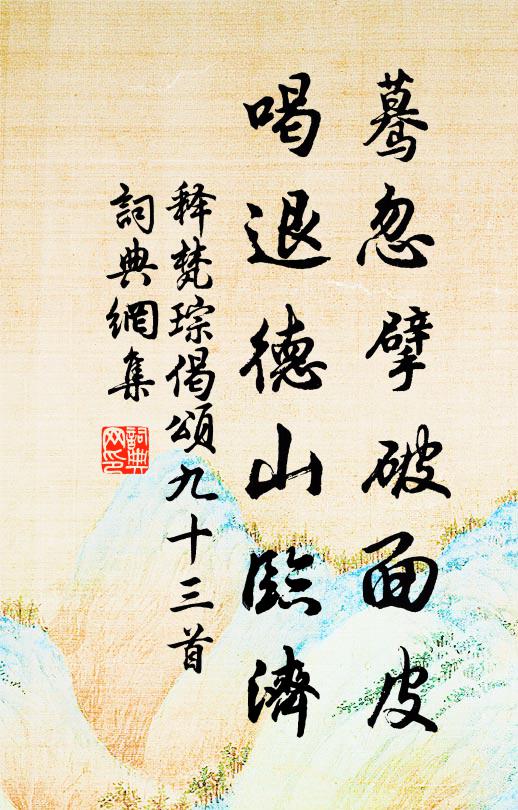 驀忽擘破面皮
喝退德山臨濟
释梵琮偈頌九十三首
詞典網集
詞典
网印